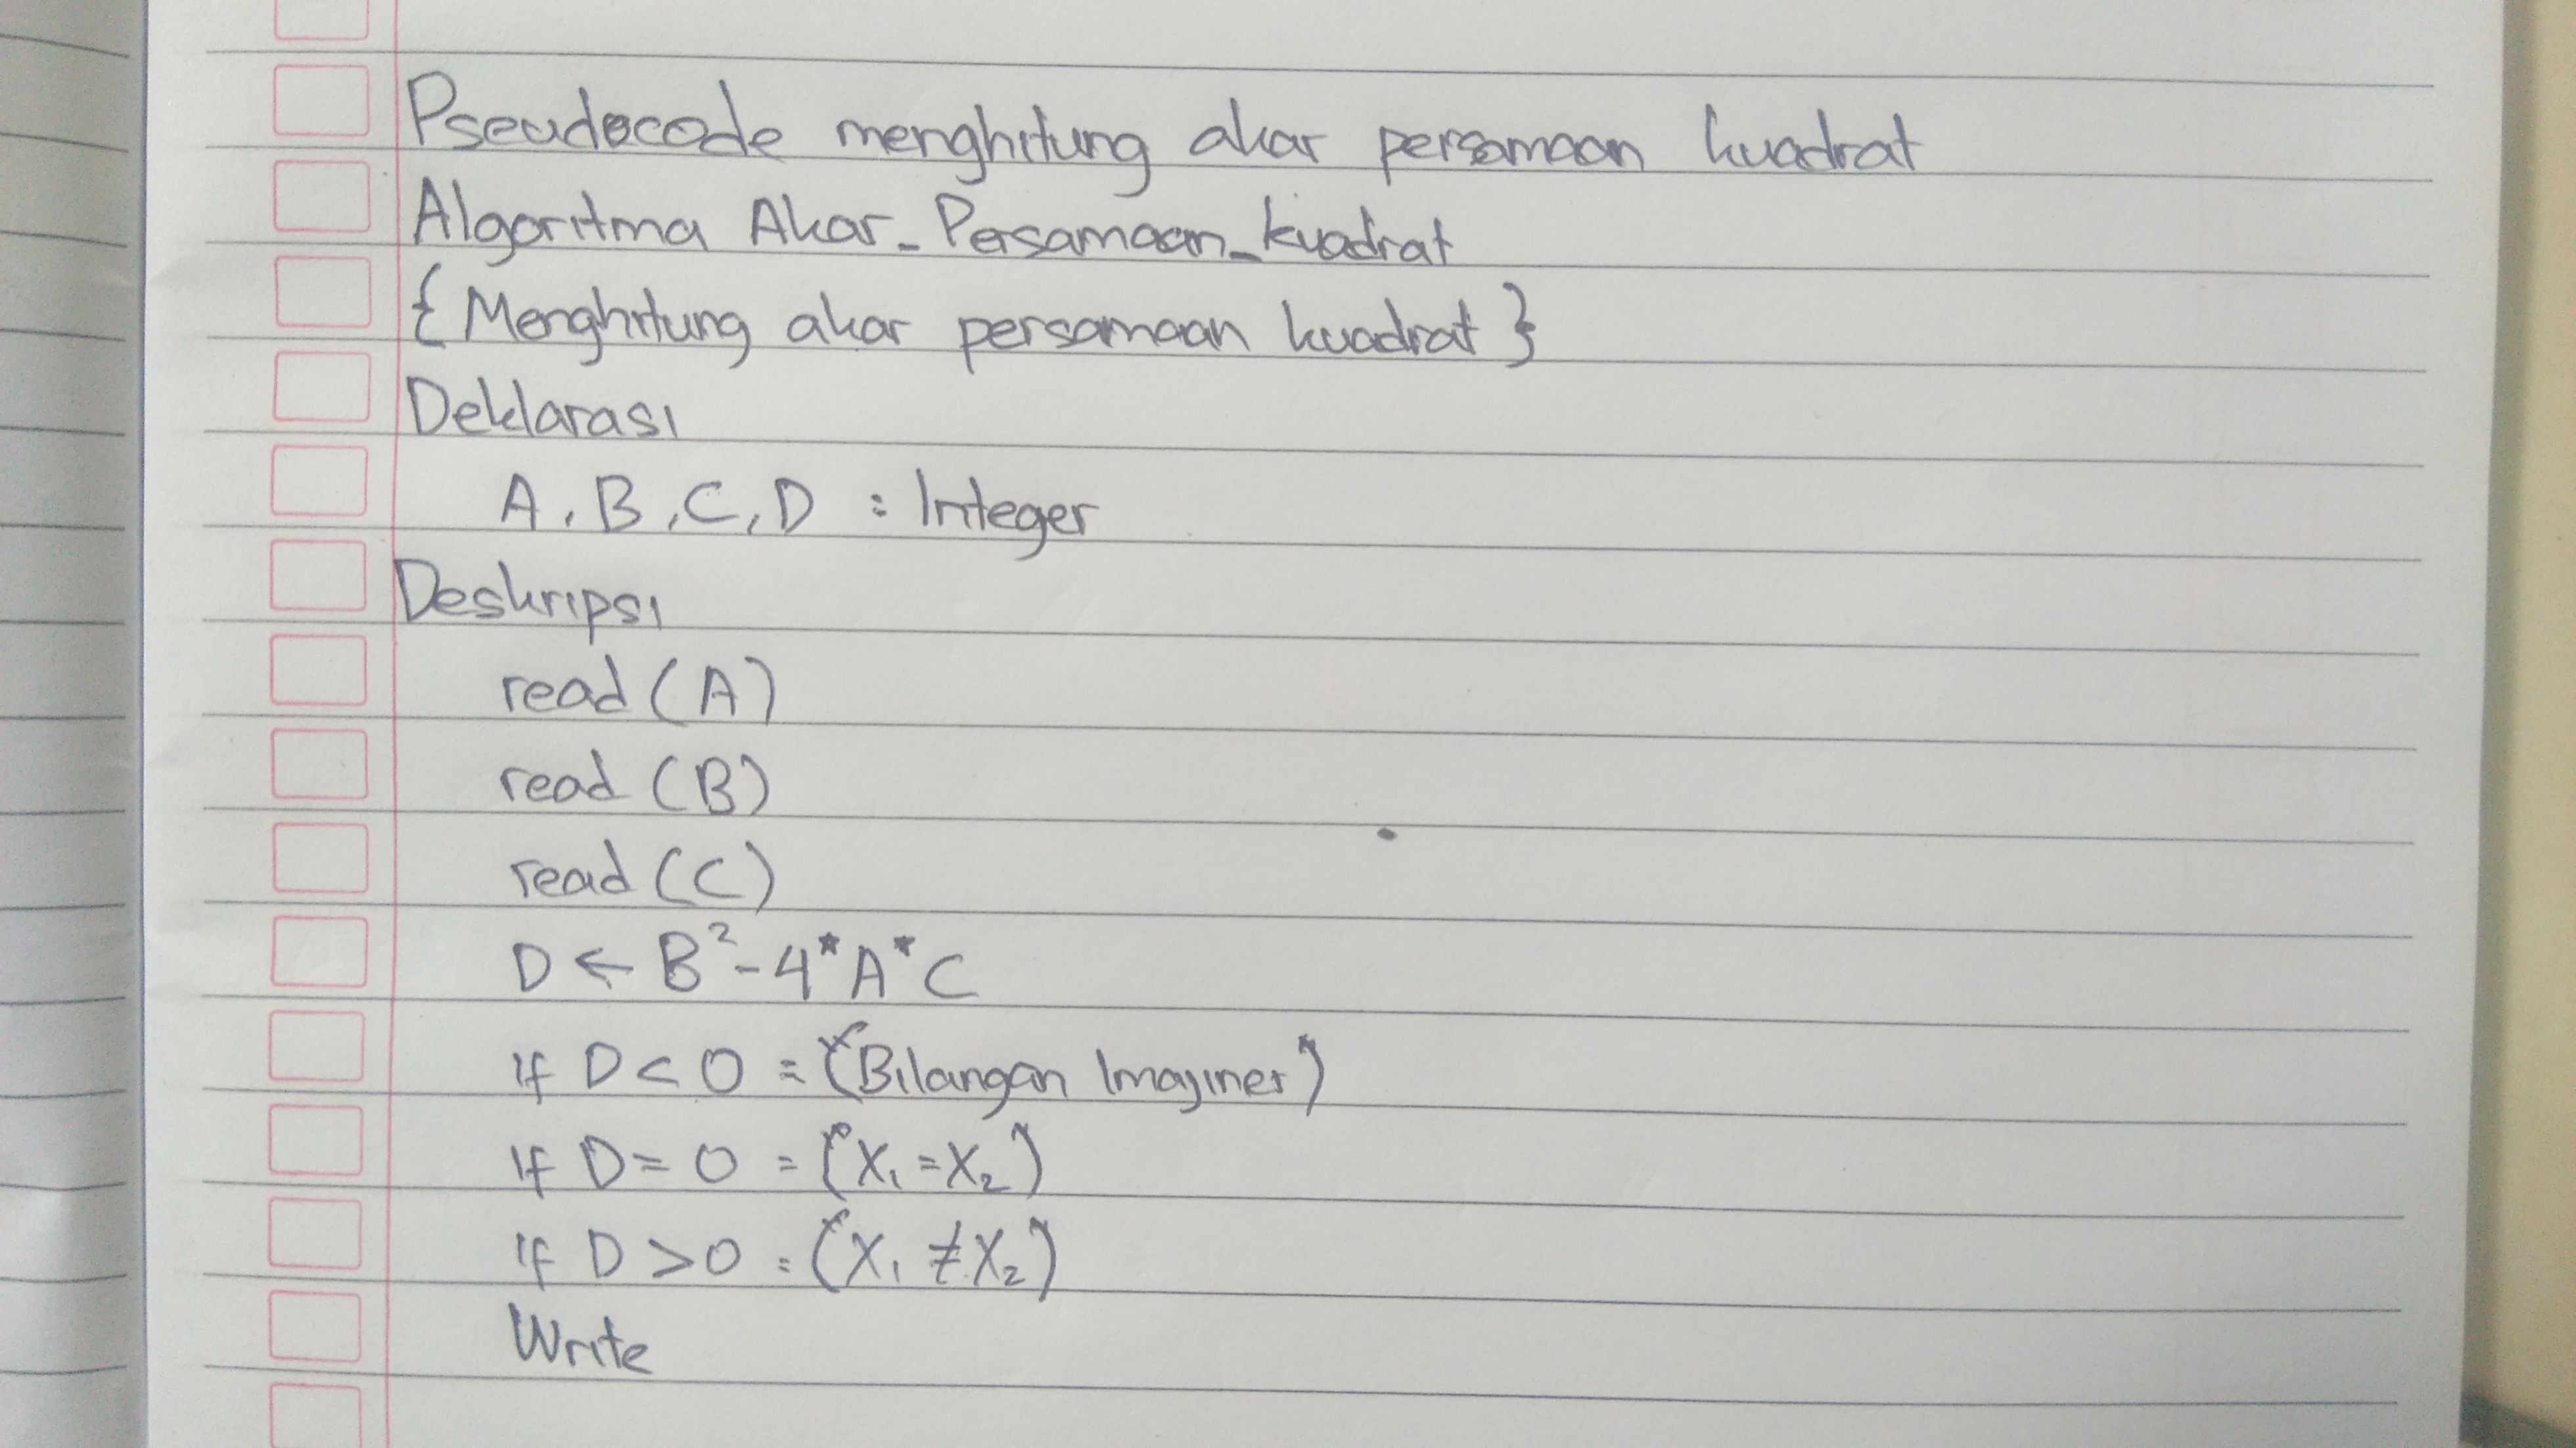 Pseudocode menghitung akar persamaan kuadrat
Algoritma Akar_Persamaan_kuadrat
{Menghitung akar persamaan kuadrat}
Deklarasi
A, B, C, D : Integer
Deskripsi
read (A)
read (B)
read (C)
D ← B² - 4*A*C
If D < 0 = (Bilangan Imajiner)
If D = 0 = (X₁ = X₂)
If D > 0 = (X₁ ≠ X₂)
Write